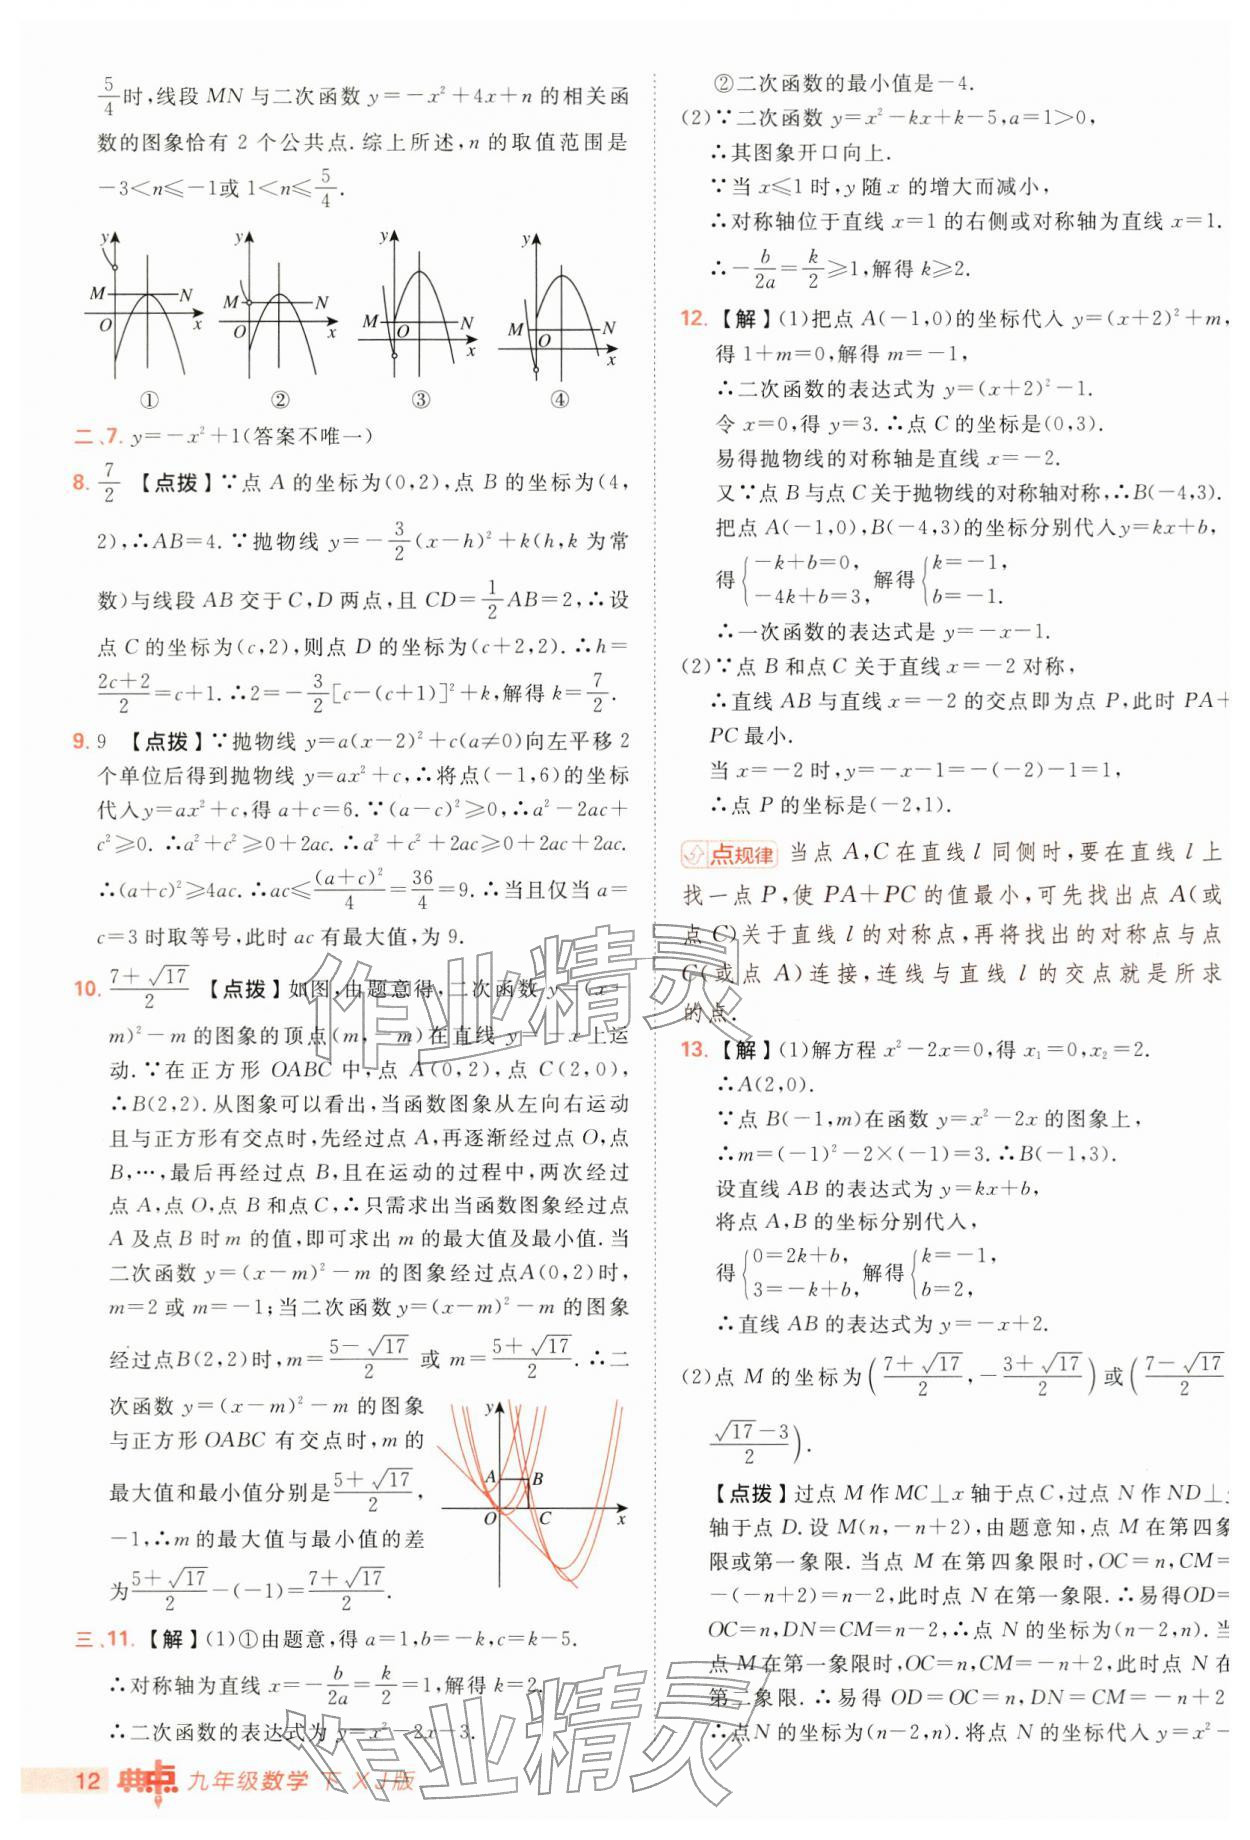 5/4时,线段 MN 与二次函数 y=-x²+4x+n 的相关函
数的图象恰有 2 个公共点.综上所述,n 的取值范围是
-3<n≤-1或 1<n≤5/4.
y M N O x ①
y M N O x ②
y M N O x ③
y M N O x ④
二、7. y=-x²+1(答案不唯一)
8. 7/2 【点拨】∵点 A 的坐标为(0,2),点 B 的坐标为(4,
2),∴AB=4.∵抛物线 y=-3/2(x-h)²+k(h,k 为常
数)与线段 AB 交于 C,D 两点,且 CD=1/2AB=2,∴设
点 C 的坐标为(c,2),则点 D 的坐标为(c+2,2).∴h=
(2c+2)/2=c+1.∴2=-3/2[c-(c+1)]²+k,解得 k=7/2.
9. 9 【点拨】∵抛物线 y=a(x-2)²+c(a≠0)向左平移 2
个单位后得到抛物线 y=ax²+c,∴将点(-1,6)的坐标
代入y=ax²+c,得 a+c=6.∵(a-c)²≥0,∴a²-2ac+
c²≥0.∴a²+c²≥0+2ac.∴a²+c²+2ac≥0+2ac+2ac.
∴(a+c)²≥4ac.∴ac≤(a+c)²/4=36/4=9.∴当且仅当 a=
c=3 时取等号,此时 ac 有最大值,为 9.
10. (7+√17)/2 【点拨】如图,由题意得,二次函数 y=(x-
m)²-m 的图象的顶点(m,-m)在直线 y=-x 上运
动.∵在正方形 OABC 中,点 A(0,2),点 C(2,0),
∴B(2,2).从图象可以看出,当函数图象从左向右运动
且与正方形有交点时,先经过点 A,再逐渐经过点 O,点
B,…,最后再经过点 B,且在运动的过程中,两次经过
点 A,点 O,点 B 和点 C,∴只需求出当函数图象经过点
A 及点 B 时 m 的值,即可求出 m 的最大值及最小值.当
二次函数 y=(x-m)²-m 的图象经过点A(0,2)时,
m=2 或 m=-1;当二次函数 y=(x-m)²-m 的图象
经过点B(2,2)时,m=(5-√17)/2 或 m=(5+√17)/2.∴二
次函数 y=(x-m)²-m 的图象
与正方形 OABC 有交点时,m 的
最大值和最小值分别是(5+√17)/2,
-1,∴m 的最大值与最小值的差
为(5+√17)/2-(-1)=(7+√17)/2.
y A B O C x
三、11.【解】(1)①由题意,得 a=1,b=-k,c=k-5.
∴对称轴为直线 x=-b/2a=k/2=1,解得 k=2.
∴二次函数的表达式为 y=x²-2x-3.
12 典点 九年级数学 下 XJ版
②二次函数的最小值是-4.
(2)∵二次函数 y=x²-kx+k-5,a=1>0,
∴其图象开口向上.
∵当 x≤1 时,y 随 x 的增大而减小,
∴对称轴位于直线 x=1 的右侧或对称轴为直线 x=1.
∴-b/2a=k/2≥1,解得 k≥2.
12.【解】(1)把点 A(-1,0)的坐标代入 y=(x+2)²+m,
得 1+m=0,解得 m=-1,
∴二次函数的表达式为 y=(x+2)²-1.
令 x=0,得 y=3.∴点 C 的坐标是(0,3).
易得抛物线的对称轴是直线 x=-2.
又∵点 B 与点 C 关于抛物线的对称轴对称,∴B(-4,3).
把点 A(-1,0),B(-4,3)的坐标分别代入y=kx+b,
得{-k+b=0, -4k+b=3, 解得{k=-1, b=-1.
∴一次函数的表达式是 y=-x-1.
(2)∵点 B 和点 C 关于直线 x=-2 对称,
∴直线 AB 与直线 x=-2 的交点即为点 P,此时 PA+
PC 最小.
当 x=-2 时,y=-x-1=-(-2)-1=1,
∴点 P 的坐标是(-2,1).
点规律 当点 A,C 在直线 l 同侧时,要在直线 l 上
找一点 P,使 PA+PC 的值最小,可先找出点 A(或
点 C)关于直线 l 的对称点,再将找出的对称点与点
C(或点 A)连接,连线与直线 l 的交点就是所求
的点.
13.【解】(1)解方程 x²-2x=0,得 x₁=0,x₂=2.
∴A(2,0).
∵点 B(-1,m)在函数 y=x²-2x 的图象上,
∴m=(-1)²-2×(-1)=3.∴B(-1,3).
设直线 AB 的表达式为 y=kx+b,
将点 A,B 的坐标分别代入,
得{0=2k+b, 3=-k+b, 解得{k=-1, b=2,
∴直线 AB 的表达式为 y=-x+2.
(2)点 M 的坐标为((7+√17)/2,-(3+√17)/2)或((7-√17)/2
(√17-3)/2).
【点拨】过点 M 作 MC⊥x 轴于点 C,过点 N 作 ND⊥y
轴于点 D.设 M(n,-n+2),由题意知,点 M 在第四象
限或第一象限.当点 M 在第四象限时,OC=n,CM=
-(-n+2)=n-2,此时点 N 在第一象限.∴易得OD=
OC=n,DN=CM=n-2,∴点 N 的坐标为(n-2,n).当
点 M在第一象限时,OC=n,CM=-n+2,此时点 N 在
第二象限.∴易得 OD=OC=n,DN=CM=-n+2
∴点N 的坐标为(n-2,n).将点 N 的坐标代入 y=x²-
作业精灵
作业精灵